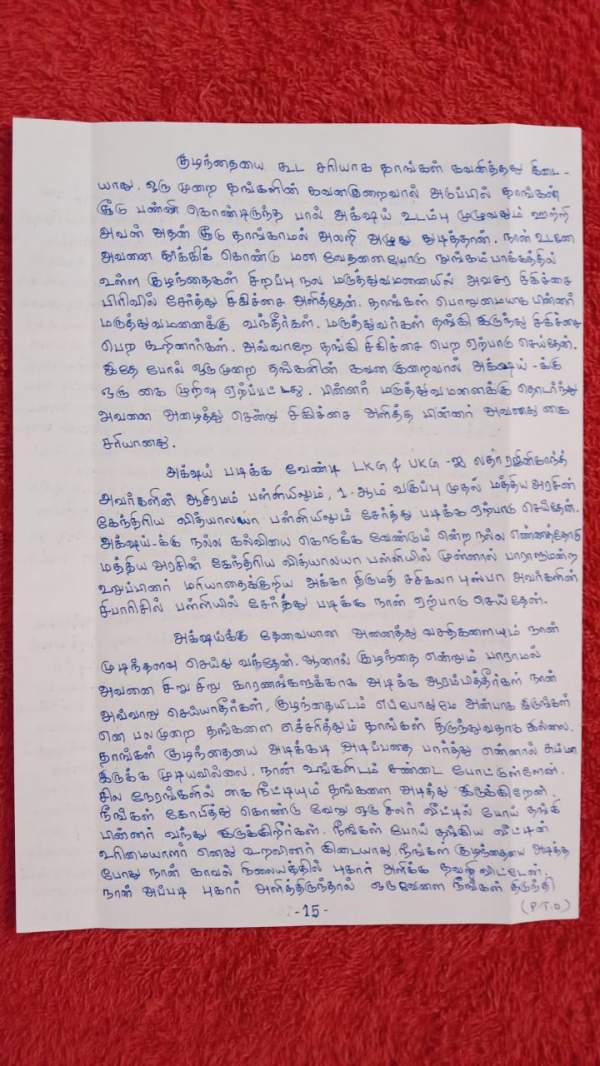 குழந்தையை கூட சரியாக தாங்கள் கவனித்தது கிடை-
யாது. ஒரு முறை தங்களின் கவனகுறைவால் அடுப்பில் தாங்கள்
சூடு பண்ணி கொண்டிருந்த பால் அக்ஷய் உடம்பு முழுவதும் ஊற்றி
அவன் அதன் சூடு தாங்காமல் அலறி அழுது துடித்தான். நான் உடனே
அவனை தூக்கிக் கொண்டு மன வேதனையோடு நுங்கம்பாக்கத்தில்
உள்ள குழந்தைகள் சிறப்பு நல மருத்துவமனையில் அவசர சிகிச்சை
பிரிவில் சேர்த்து சிகிச்சை அளித்தேன். தாங்கள் பொறுமையாக பின்னர்
மருத்துவமனைக்கு வந்தீர்கள். மருத்துவர்கள் தங்கி இருந்து சிகிச்சை
பெற கூறினார்கள். அவ்வாறே தங்கி சிகிச்சை பெற ஏற்பாடு செய்தேன்.
இதே போல் ஒருமுறை தங்களின் கவன குறைவால் அக்ஷய் - க்கு
ஒரு கை முறிவு ஏற்பட்டது. பின்னர் மருத்துவமனைக்கு தொடர்ந்து
அவனை அழைத்து சென்று சிகிச்சை அளித்த பின்னர் அவனது கை
சரியானது.
அக்ஷய் படிக்க வேண்டி LKG & UKG -ஐ லதா ரஜினிகாந்த்
அவர்களின் ஆசிரமம் பள்ளியிலும், 1-ஆம் வகுப்பு முதல் மத்திய அரசின்
கேந்திரிய வித்யாலயா பள்ளியிலும் சேர்த்து படிக்க ஏற்பாடு செய்தேன்.
அக்ஷய்-க்கு நல்ல கல்வியை கொடுக்க வேண்டும் என்ற நல்ல எண்ணத்தோடு
மத்திய அரசின் கேந்திரிய வித்யாலயா பள்ளியில் முன்னால் பாராளுமன்ற
உறுப்பினர் மரியாதைக்குறிய அக்கா திருமதி சசிகலா புஷ்பா அவர்களின்
சிபாரிசில் பள்ளியில் சேர்த்து படிக்க நான் ஏற்பாடு செய்தேன்.
அக்ஷய்க்கு தேவையான அனைத்து வசதிகளையும் நான்
முடிந்தளவு செய்து வந்தேன். ஆனால் குழந்தை என்றும் பாராமல்
அவனை சிறு சிறு காரணங்களுக்காக அடிக்க ஆரம்பித்தீர்கள் நான்
அவ்வாறு செய்யாதீர்கள், குழந்தையிடம் எப்போதுமே அன்பாக இருங்கள்
என பலமுறை தங்களை எச்சரித்தும் தாங்கள் திருந்துவதாக இல்லை.
தாங்கள் குழந்தையை அடிக்கடி அடிப்பதை பார்த்து என்னால் சும்மா
இருக்க முடியவில்லை. நான் உங்களிடம் சண்டை போட்டுள்ளேன்.
சில நேரங்களில் கை நீட்டியும் தங்களை அடித்து இருக்கிறேன்.
நீங்கள் கோபித்து கொண்டு வேறு ஒரு சிலர் வீட்டில் போய் தங்கி
பின்னர் வந்து இருக்கிறீர்கள். நீங்கள் போய் தங்கிய வீட்டின்
உரிமையாளர் எனது உறவினர் கிடையாது நீங்கள் குழந்தையை அடித்த
போது நான் காவல் நிலையத்தில் புகார் அளிக்க தவறிவிட்டேன்.
நான் அப்படி புகார் அளித்திருந்தால் ஒருவேளை நீங்கள் திருந்தி
-15-
(P.T.O)